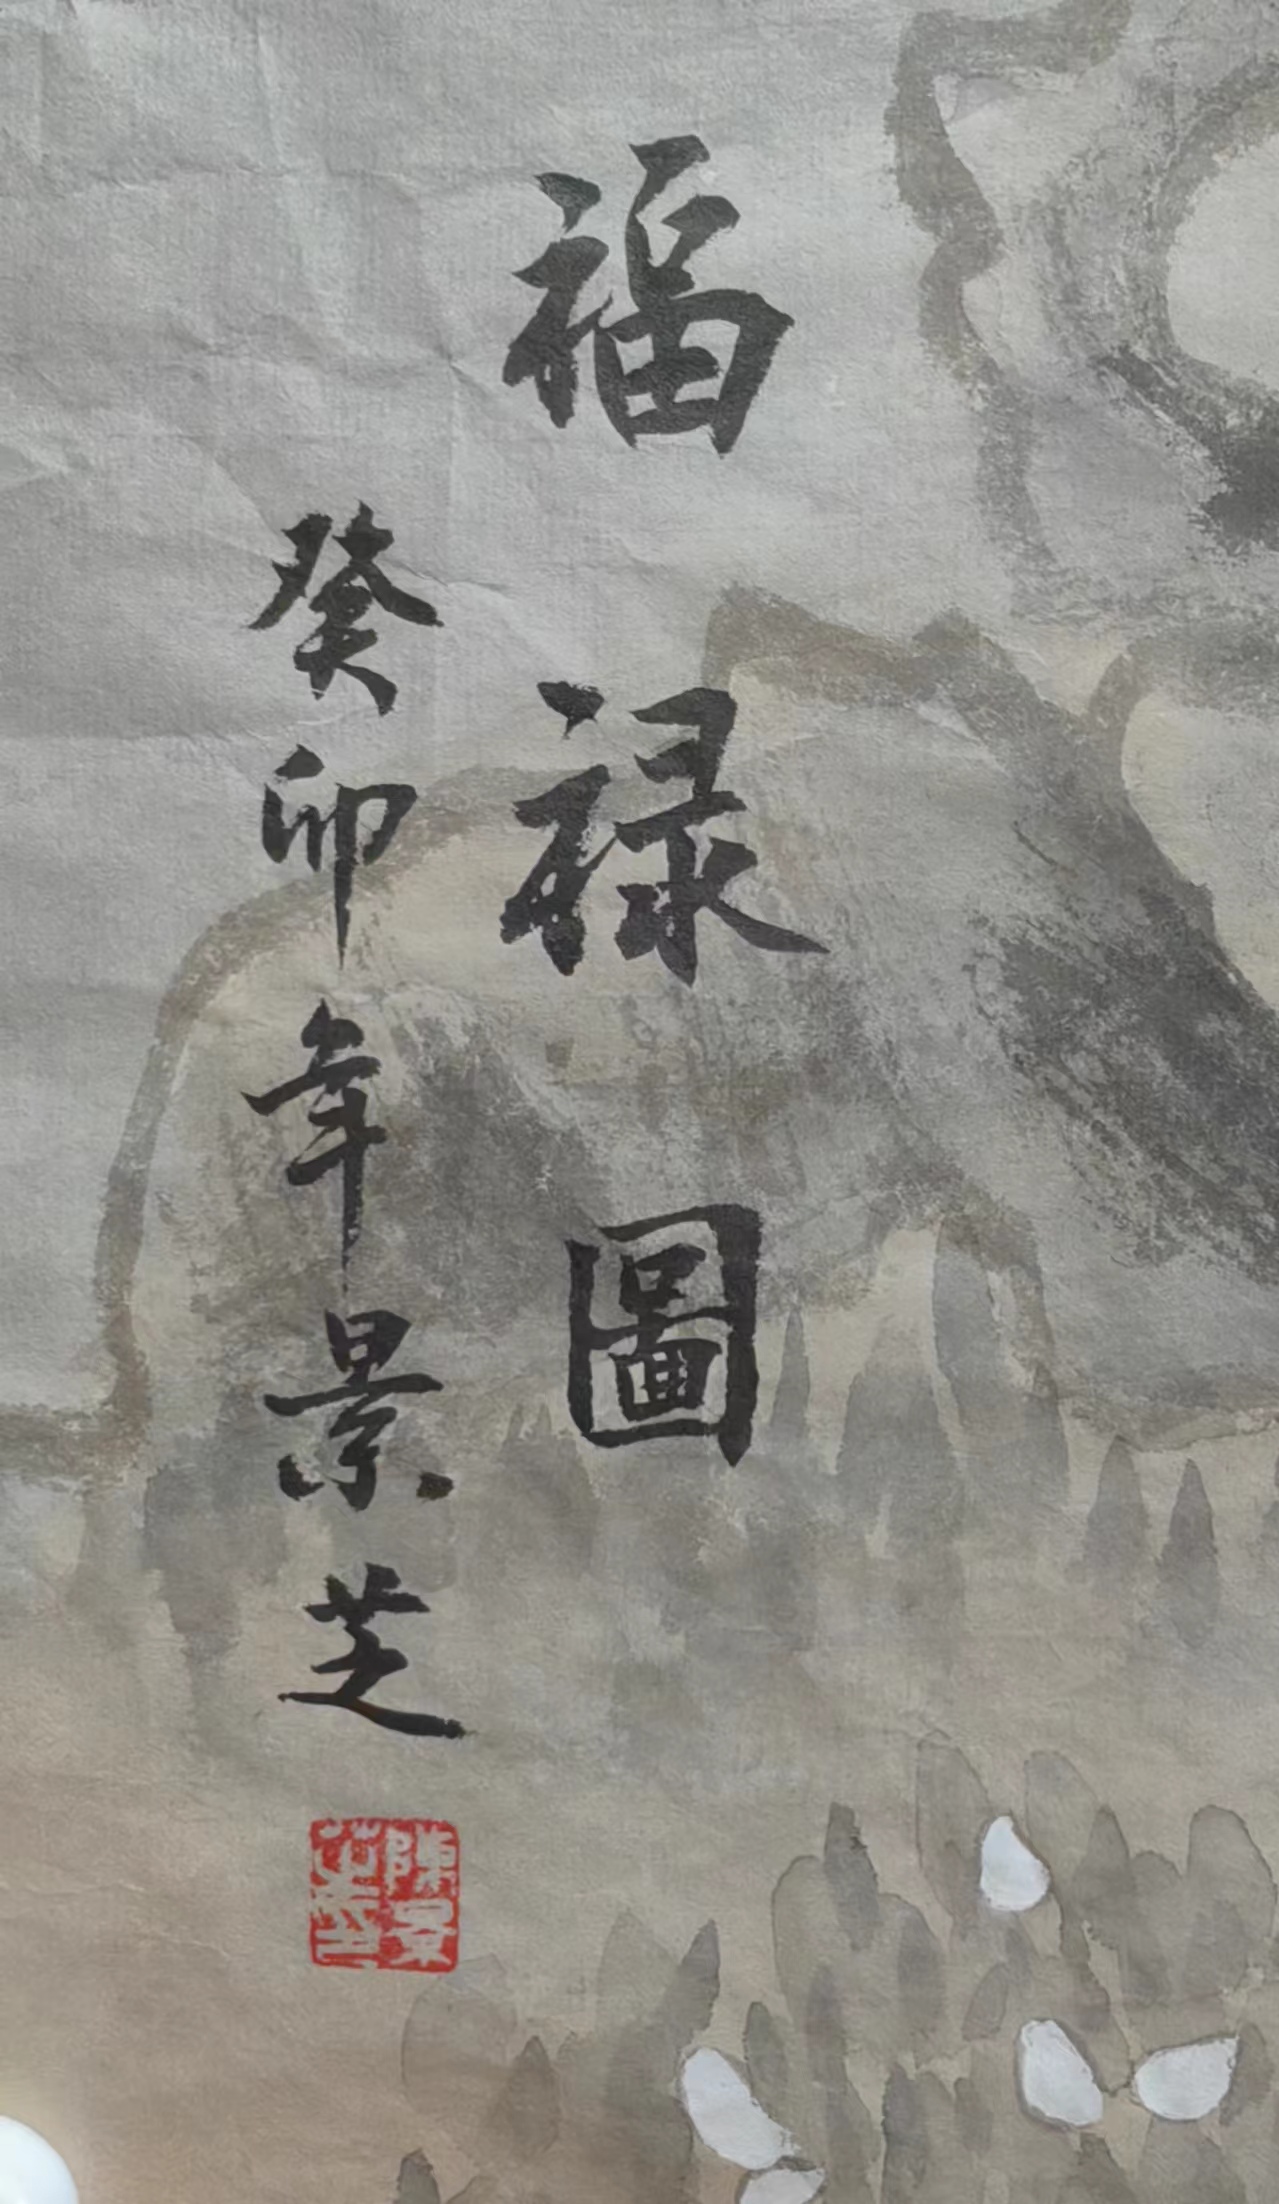 福禄圖
癸卯年景芝
陳景
芝印